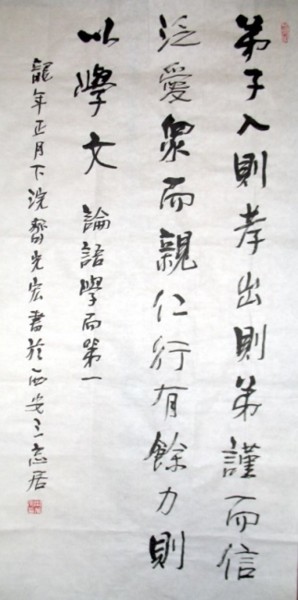 弟子入則孝出則弟謹而信
泛愛衆而親仁行有餘力則
以學文 論語學而第一
龍年正月下浣 光宏書於西安三志居